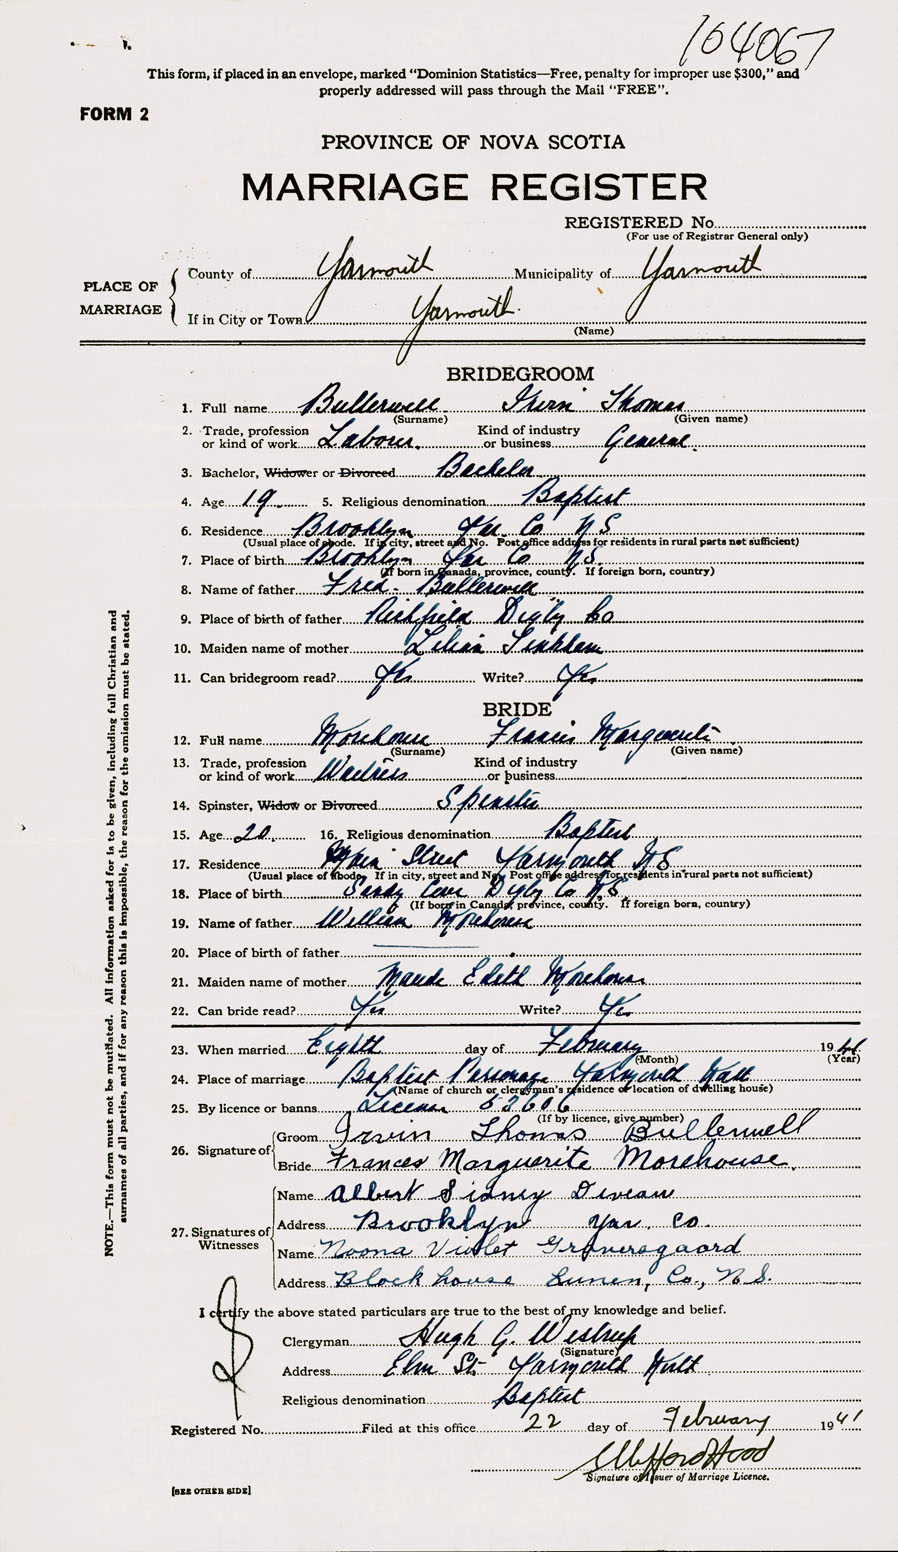 164067
This form, if placed in an envelope, marked "Dominion Statistics—Free, penalty for improper use $300," and
properly addressed will pass through the Mail "FREE".
FORM 2
PROVINCE OF NOVA SCOTIA
MARRIAGE REGISTER
REGISTERED No.
(For use of Registrar General only)
PLACE OF MARRIAGE
County of Yarmouth Municipality of Yarmouth
If in City or Town Yarmouth
(Name)
BRIDEGROOM
1. Full name Bullerwell Irvin Thomas
(Surname) (Given name)
2. Trade, profession or kind of work Labour Kind of industry or business General
3. Bachelor, Widower or Divorced Bachelor
4. Age 19 5. Religious denomination Baptist
6. Residence Brooklyn Yar. Co N S
(Usual place of abode. If in city, street and No. Post office address for residents in rural parts not sufficient)
7. Place of birth Brooklyn Yar Co N.S.
(If born in Canada, province, county. If foreign born, country)
8. Name of father Fred. Bullerwell
9. Place of birth of father Richfield Digby Co
10. Maiden name of mother Lilian Tinkham
11. Can bridegroom read? Yes Write? Yes
BRIDE
12. Full name Morehouse Francis Marguerite
(Surname) (Given name)
13. Trade, profession or kind of work Waitress Kind of industry or business
14. Spinster, Widow or Divorced Spinster
15. Age 20 16. Religious denomination Baptist
17. Residence Main Street Yarmouth N S
(Usual place of abode. If in city, street and No. Post office address for residents in rural parts not sufficient)
18. Place of birth Sandy Cove Digby Co N.S.
(If born in Canada, province, county. If foreign born, country)
19. Name of father William Morehouse
20. Place of birth of father
21. Maiden name of mother Maude Edith Morehouse
22. Can bride read? Yes Write? Yes
23. When married Eighth day of February 1941
(Month) (Year)
24. Place of marriage Baptist Parsonage Yarmouth North
(Name of church or clergyman's residence or location of dwelling house)
25. By licence or banns License 53606
(If by licence, give number)
26. Signature of
Groom Irvin Thomas Bullerwell
Bride Frances Marguerite Morehouse.
27. Signatures of Witnesses
Name Albert Sidney Deveau
Address Brooklyn Yar. Co.
Name Noona Violet Graversgaard
Address Block house Lunen, Co., N.S.
I certify the above stated particulars are true to the best of my knowledge and belief.
Clergyman Hugh G. Westrup
(Signature)
Address Elm St. Yarmouth North
Religious denomination Baptist
Registered No. Filed at this office 22 day of February 1941
Clifford Hood
Signature of Issuer of Marriage Licence.
[SEE OTHER SIDE]
NOTE.—This form must not be mutilated. All information asked for is to be given, including full Christian and
surnames of all parties, and if for any reason this is impossible, the reason for the omission must be stated.